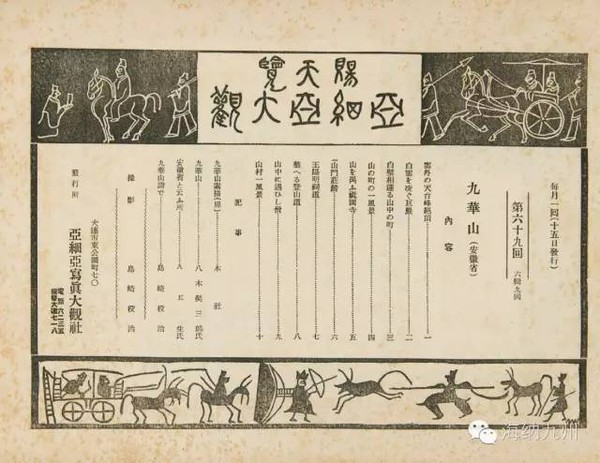 賜天覽
亞細亞大觀
每月一回(十五日發行)
第六十九回 六輯九回
九華山(安徽省)
內容
雲外の天台峰絕頂 一
白雲を凌ぐ巨巖 二
白壁相連る山中の町 三
山の町の一風景 四
山を 祇園寺 五
山門莊嚴 六
王陽明祠 七
登山道 八
山中に遇ひし僧 九
山村一風景 十
記事
九華山 (扉) 本社
九華山 八木奘三郎氏
安徽省と云ふ所 生氏
九華山詣で 島崎役治
撮影 島崎役治
發行所 大連市東公園町七〇
亞細亞寫眞大觀社
電話六二三五
振替大連七一八
海纳九州